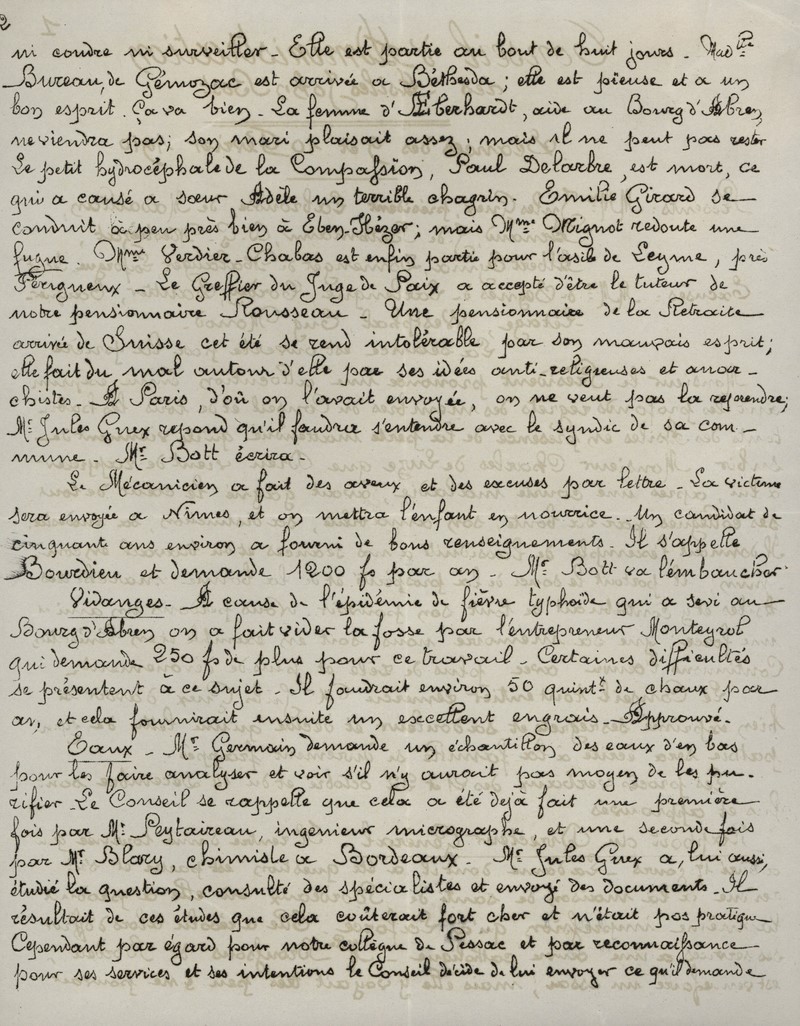 2
ni coudre ni surveiller - Elle est partie au bout de huit jours - Mad.lle
Bureau, de Gémozac est arrivée à Béthesda ; elle est pieuse et a un
bon esprit. Ça va bien - La femme d'Eberhardt, aide au Bourg d'Abren
ne viendra pas; son mari plaisait assez ; mais il ne peut pas rester
Le petit hydrocéphale de la Compassion, Paul Delarbre, est mort, ce
qui a causé à sœur Adèle un terrible chagrin. Emilie Girard se
conduit à peu près bien à Eben-Hézer ; mais Mme Mignot redoute une
fugue. Mme Verdier-Chabas est enfin partie pour l'asile de Leyme, près
Périgueux - Le Greffier du Juge de Paix a accepté d'être le tuteur de
notre pensionnaire Rousseau - Une pensionnaire de la Retraite
arrivée de Suisse cet été se rend intolérable par son mauvais esprit ;
elle fait du mal autour d'elle par ses idées anti-religieuses et anar-
chistes - A Paris, d'où on l'avait envoyée, on ne veut pas la reprendre;
Mr Jules Guex répond qu'il faudra s'entendre avec le syndic de sa com-
mune - Mr Bott écrira -
Le Mécanicien a fait des aveux et des excuses par lettre - La victime
sera envoyée à Nîmes, et on mettra l'enfant en nourrice. - Un candidat de
cinquante ans environ a fourni de bons renseignements. Il s'appelle
Bourdieu et demande 1200 fs par an - Mr Bott va l'embaucher
Vidanges - A cause de l'épidémie de fièvre typhoïde qui a sévi au
Bourg d'Abren on a fait vider la fosse par l'entrepreneur Monteyrol
qui demande 250 fs de plus pour ce travail - Certaines difficultés
se présentent à ce sujet - Il faudrait environ 50 quint. de chaux par
an, et cela fournirait ensuite un excellent engrais - Approuvé.
Eaux - Mr Germain demande un échantillon des eaux d'en bas
pour les faire analyser et voir s'il n'y aurait pas moyen de les pu-
rifier - Le Conseil se rappelle que cela a été déjà fait une première
fois par Mr Peytaireau, ingénieur micrographe, et une seconde fois
par Mr Blary, chimiste à Bordeaux - Mr Jules Guex a, lui aussi,
étudié la question, consulté des spécialistes et envoyé des documents - Il
résultait de ces études que cela coûterait fort cher et n'était pas pratique
Cependant par égard pour notre collègue de Pessac et par reconnaissance
pour ses services et ses intentions le Conseil décide de lui envoyer ce qu'il demande